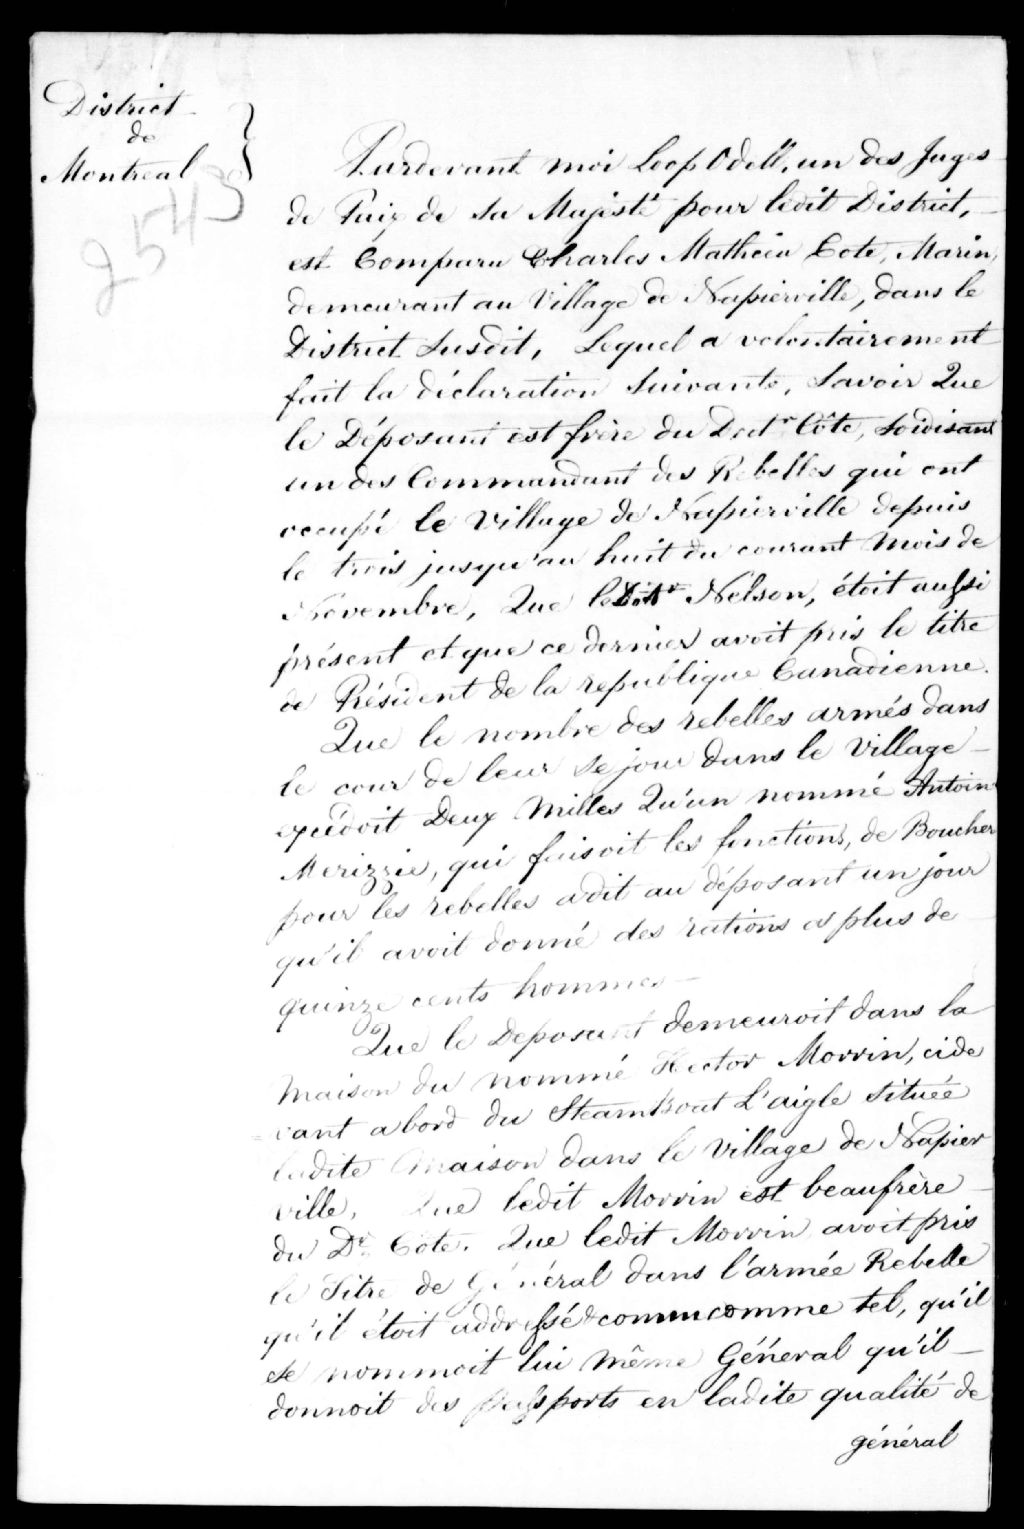 District
de
Montreal
2543
Pardevant moi Loop Odell, un des Juges
de Paix de Sa Majesté pour ledit District,
est Comparu Charles Mathieu Cote, Marin,
demeurant au Village de Napierville, dans le
District Susdit, Lequel a volontairement
fait la déclaration Suivante, Savoir Que
le Déposant est frère du Doctr Côte, soidisant
un des Commandant des Rebelles qui ont
occupé le Village de Napierville depuis
le trois jusqu'au huit du courant Mois de
Novembre, Que le Doctr Nelson, étoit aussi
présent et que ce dernier avoit pris le titre
de Président de la republique Canadienne.
Que le nombre des rebelles armés dans
le cour de leur Sejour dans le Village
excédoit Deux Milles Qu'un nommé Antoine
Merizzie, qui faisoit les fonctions, de Boucher
pour les rebelles a dit au déposant un jour
qu'il avoit donné des rations a plus de
quinze cents hommes
Que le Deposant demeuroit dans la
Maison du nommé Hector Morrin, cide
vant abord du Steamboat L'aigle Située
ladite Maison dans le Village de Napier
ville, Que ledit Morrin est beaufrère
du Dr Côte. Que ledit Morrin avoit pris
le Titre de Général dans l'armée Rebelle
qu'il étoit addressé & connu comme tel, qu'il
se nommoit lui Même Général qu'il
donnoit des passports en ladite qualité de
général